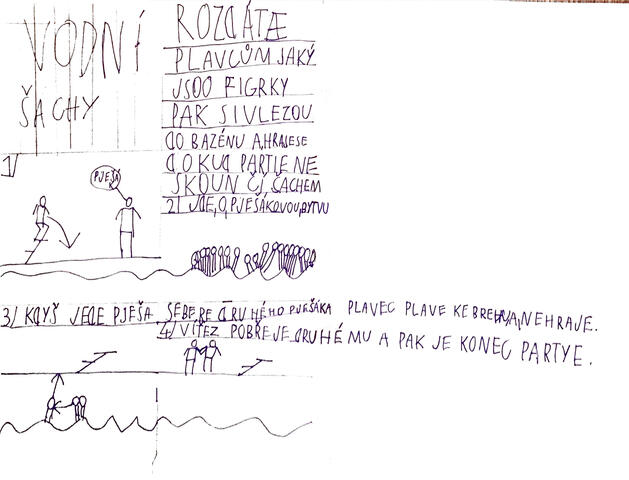 VODNÍ
ŠACHY
ROZDÁTE
PLAVCŮM JAKÝ
JSOO FIGRKY
PAK SI VLEZOU
DO BAZÉNU A HRAJE SE
DOKUD PARTIE NE
SKOUN ČÍ ŠACHEM
1/
PJEŠÁK
2/ JDE, O, PJEŠÁKOVOU, BYTVU
3/ KDYŠ JEDE PJEŠA SEBERE DRUHÉHO PJEŠÁKA PLAVEC PLAVE KE BREHU A NEHRAJE.
4/ VÍTEZ POBŘEJE DRUHÉ MU A PAK JE KONEC PARTYE.